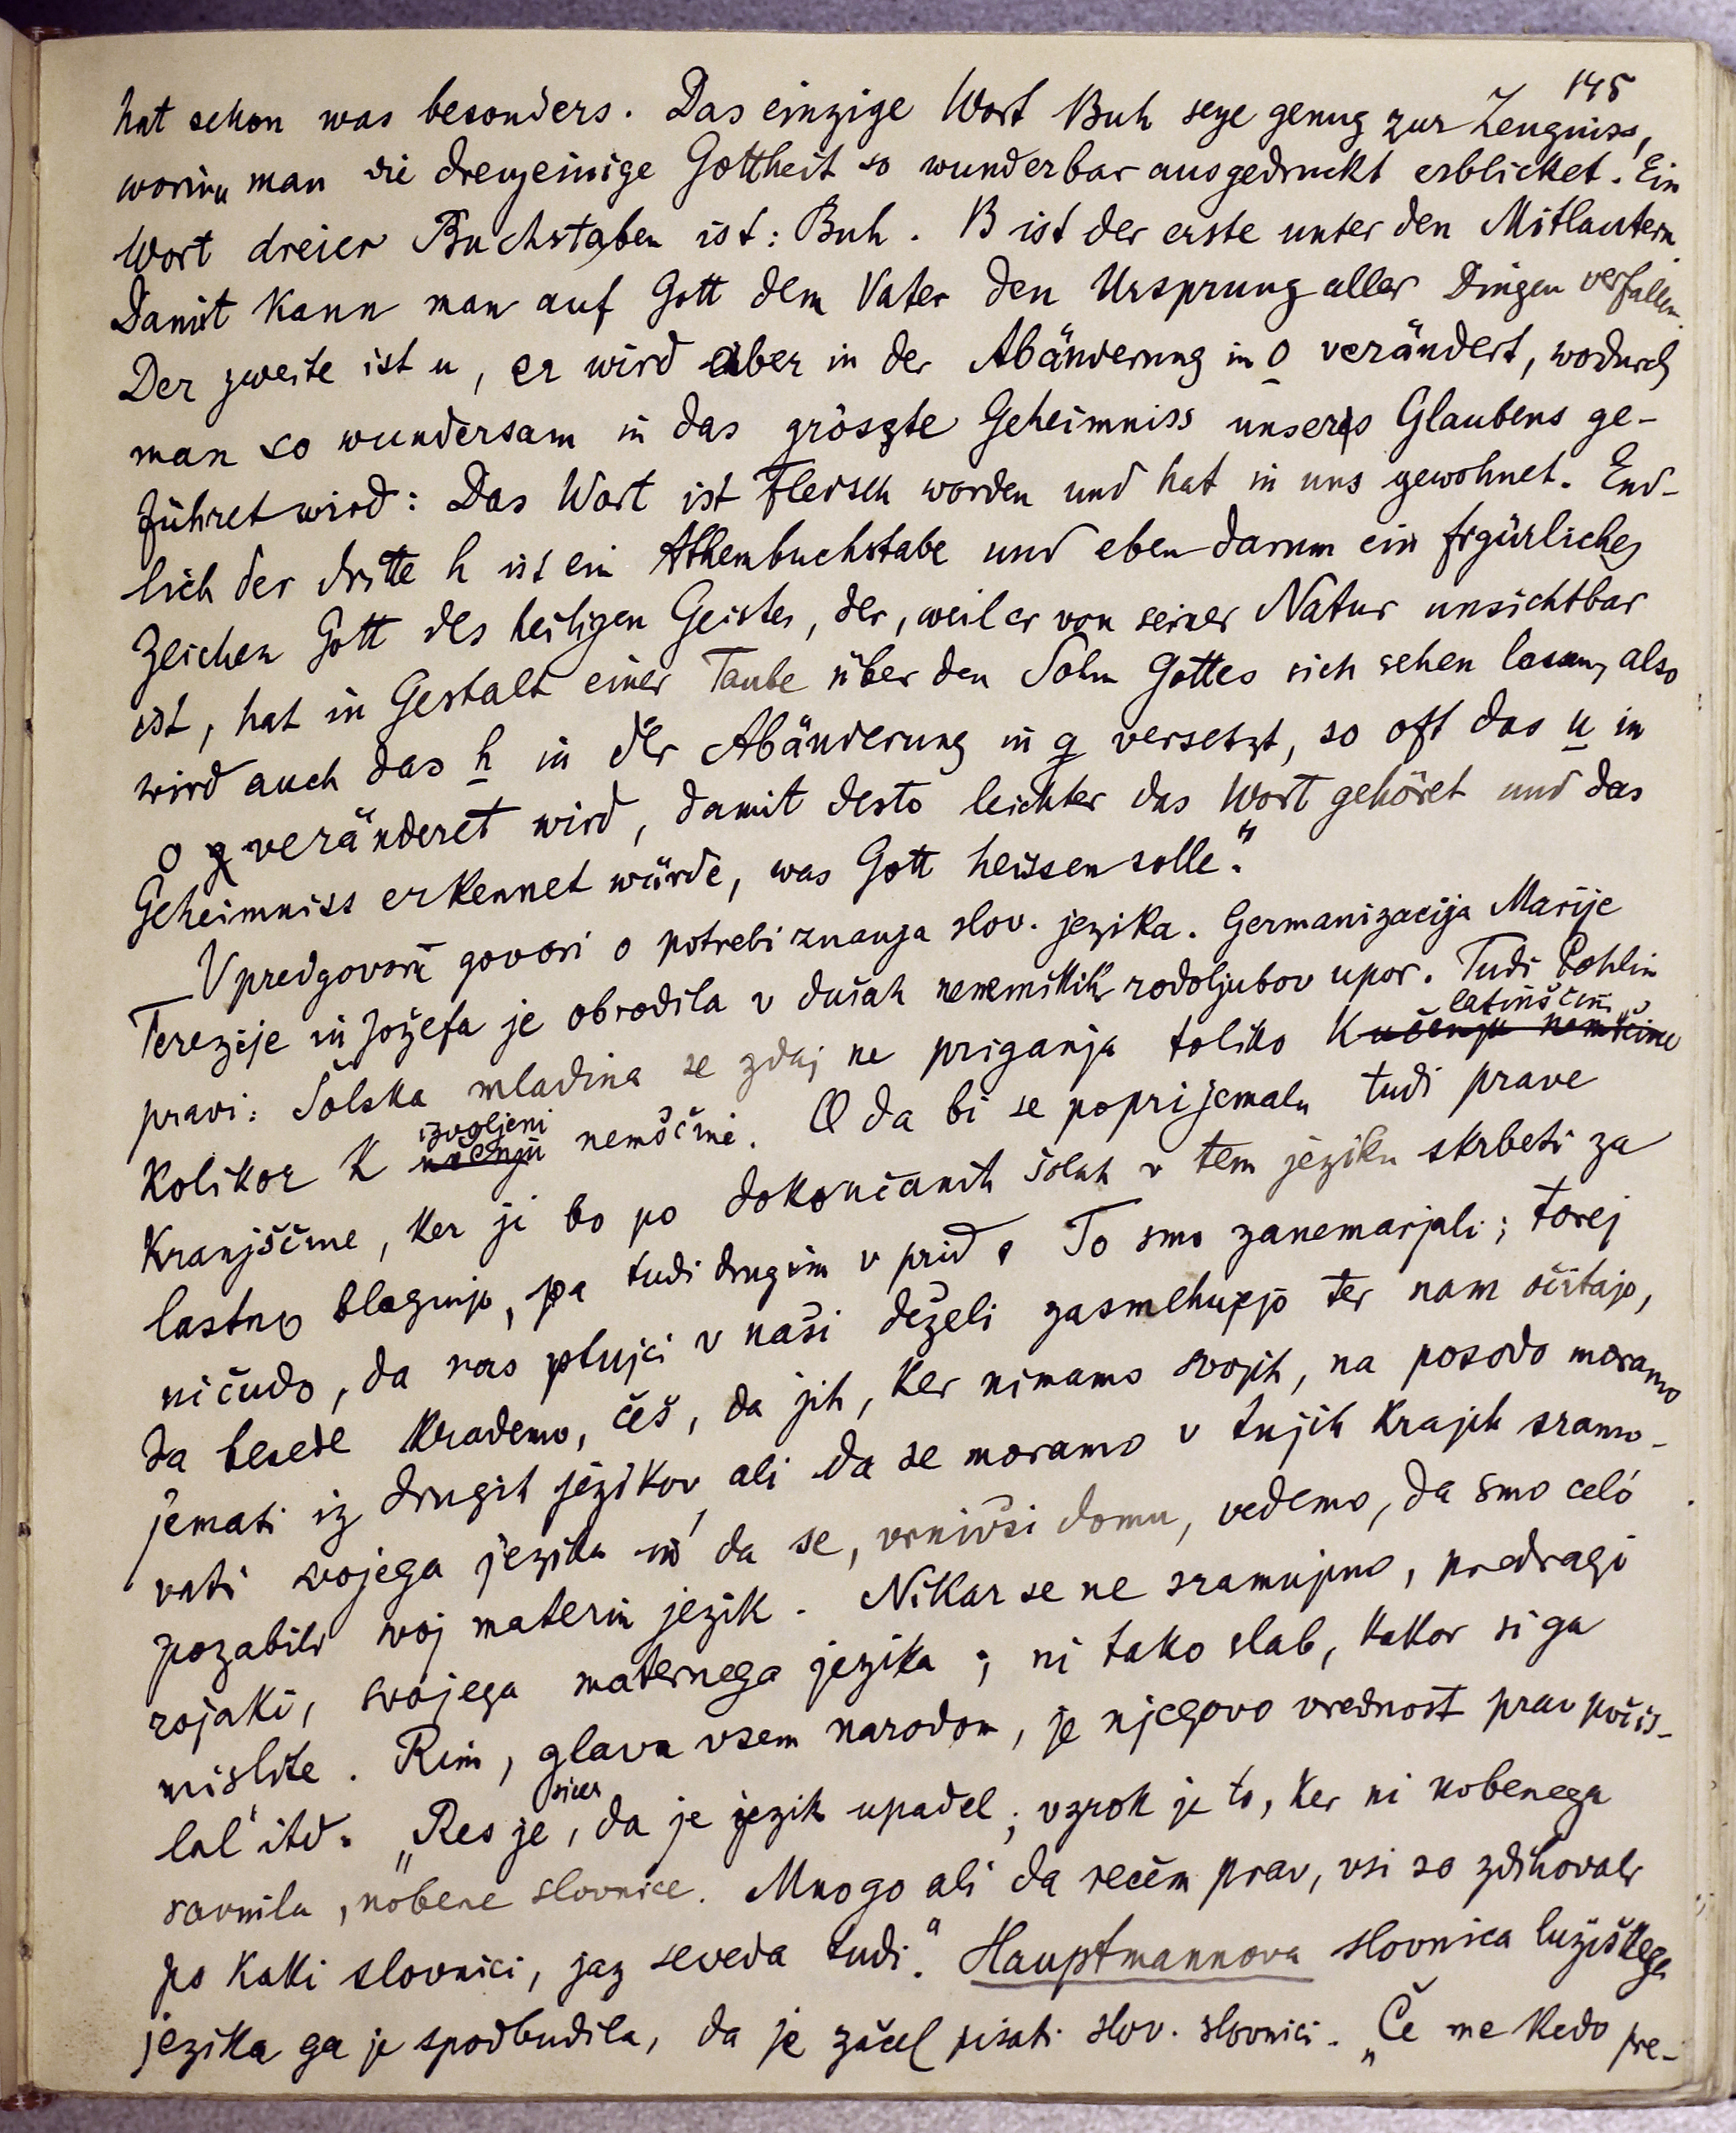 145
hat schon was besonders. Das einzige Wort Buh seye genug zur Zeugniss,
worinn man die dreyeinige Gottheit so wunderbar ausgedruckt erblicket. Ein
Wort dreier Buchstaben ist: Buh. B ist der erste unter den Mitlautern.
Damit kann man auf Gott dem Vater den Ursprung aller Dingen verfallen.
Der zweite ist u, er wird aber in der Abänderung in o verändert, wodurch
man so wundersam in das gröszte Geheimniss unseres Glaubens ge-
führet wird: Das Wort ist Fleisch worden und hat in uns gewohnet. End-
lich der dritte h ist ein Athembuchstabe und eben darum ein figürliches
Zeichen Gott des heiligen Geistes, der, weil er von seiner Natur unsichtbar
ist, hat in Gestalt einer Taube über den Sohn Gottes sich sehen lasen, also
wird auch das h in der Abänderung in g versetzt, so oft das u in
o veränderet wird, damit desto leichter das Wort gehöret und das
Geheimniss erkennet würde, was Gott heissen solle."
V predgovoru govori o potrebi znanja slov. jezika. Germanizacija Marije
Terezije in Jožefa je obrodila v dušah nenemških rodoljubov upor. Tudi Pohlin
pravi: Šolska mladina se zdaj ne priganja toliko k učenju nemščine latinščini,
kolikor k učenju izvoljeni nemščini. O da bi se poprijemala tudi prave
kranjščine, ker ji bo po dokončanih šolah v tem jeziku skrbeti za
lastno blaginjo, pa tudi drugim v prid. To smo zanemarjali; torej
ni čudo, da nas ptujci v naši deželi zasmehujejo ter nam očitajo,
da besede krademo, češ, da jih, ker nimamo svojih, na posodo moramo
jemati iz drugih jezikov, ali da se moramo v tujih krajih sramo-
vati svojega jezika in da se, vrnivši domu, vedemo, da smo celó
pozabili svoj materin jezik. Nikar se ne sramujmo, predragi
rojaki, svojega maternega jezika; ni tako slab, kakor si ga
mislite. Rim, glava vsem narodom, je njegovo vrednost prav počis-
lal itd. „Res je sicer, da je jezik upadel; vzrok je to, ker ni nobenega
ravnila, nobene slovnice. Mnogo ali da rečem prav, vsi so zdihovali
po kaki slovnici, jaz seveda tudi." Hauptmannova slovnica lužiškega
jezika ga je spodbudila, da je začel pisati slov. slovnici. „Če me kedo pre-